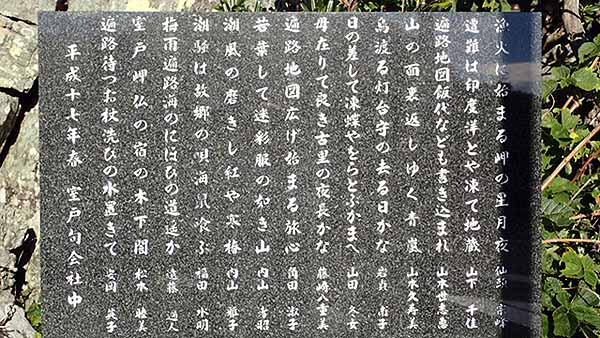 漁火に始まる岬の星月夜
遭難は印度洋とや凍て地蔵 山下 千佳
遍路地図飯代なども書き込まれ 山本世志恵
山の面裏返しゆく青嵐 山本久寿美
鳥渡る灯台守の去る日かな 岩貞
日の差して凍蝶やをらとぶかまへ 山田 久女
母在りて良き古里の夜長かな 藤崎八重美
遍路地図広げ始まる旅心 角田 淑子
若葉して迷彩服の如き山 内山 青昭
潮風の磨きし紅や寒椿 内山 雅子
潮騒は故郷の唄海鼠喰ふ 福田 水明
梅雨遍路海のにほひの道延か 遠藤
室戸岬仏の宿の木下闇 松本 睦美
遍路待つお杖洗ひの水置きて 安岡 英子
平成十七年春 室戸句会社中